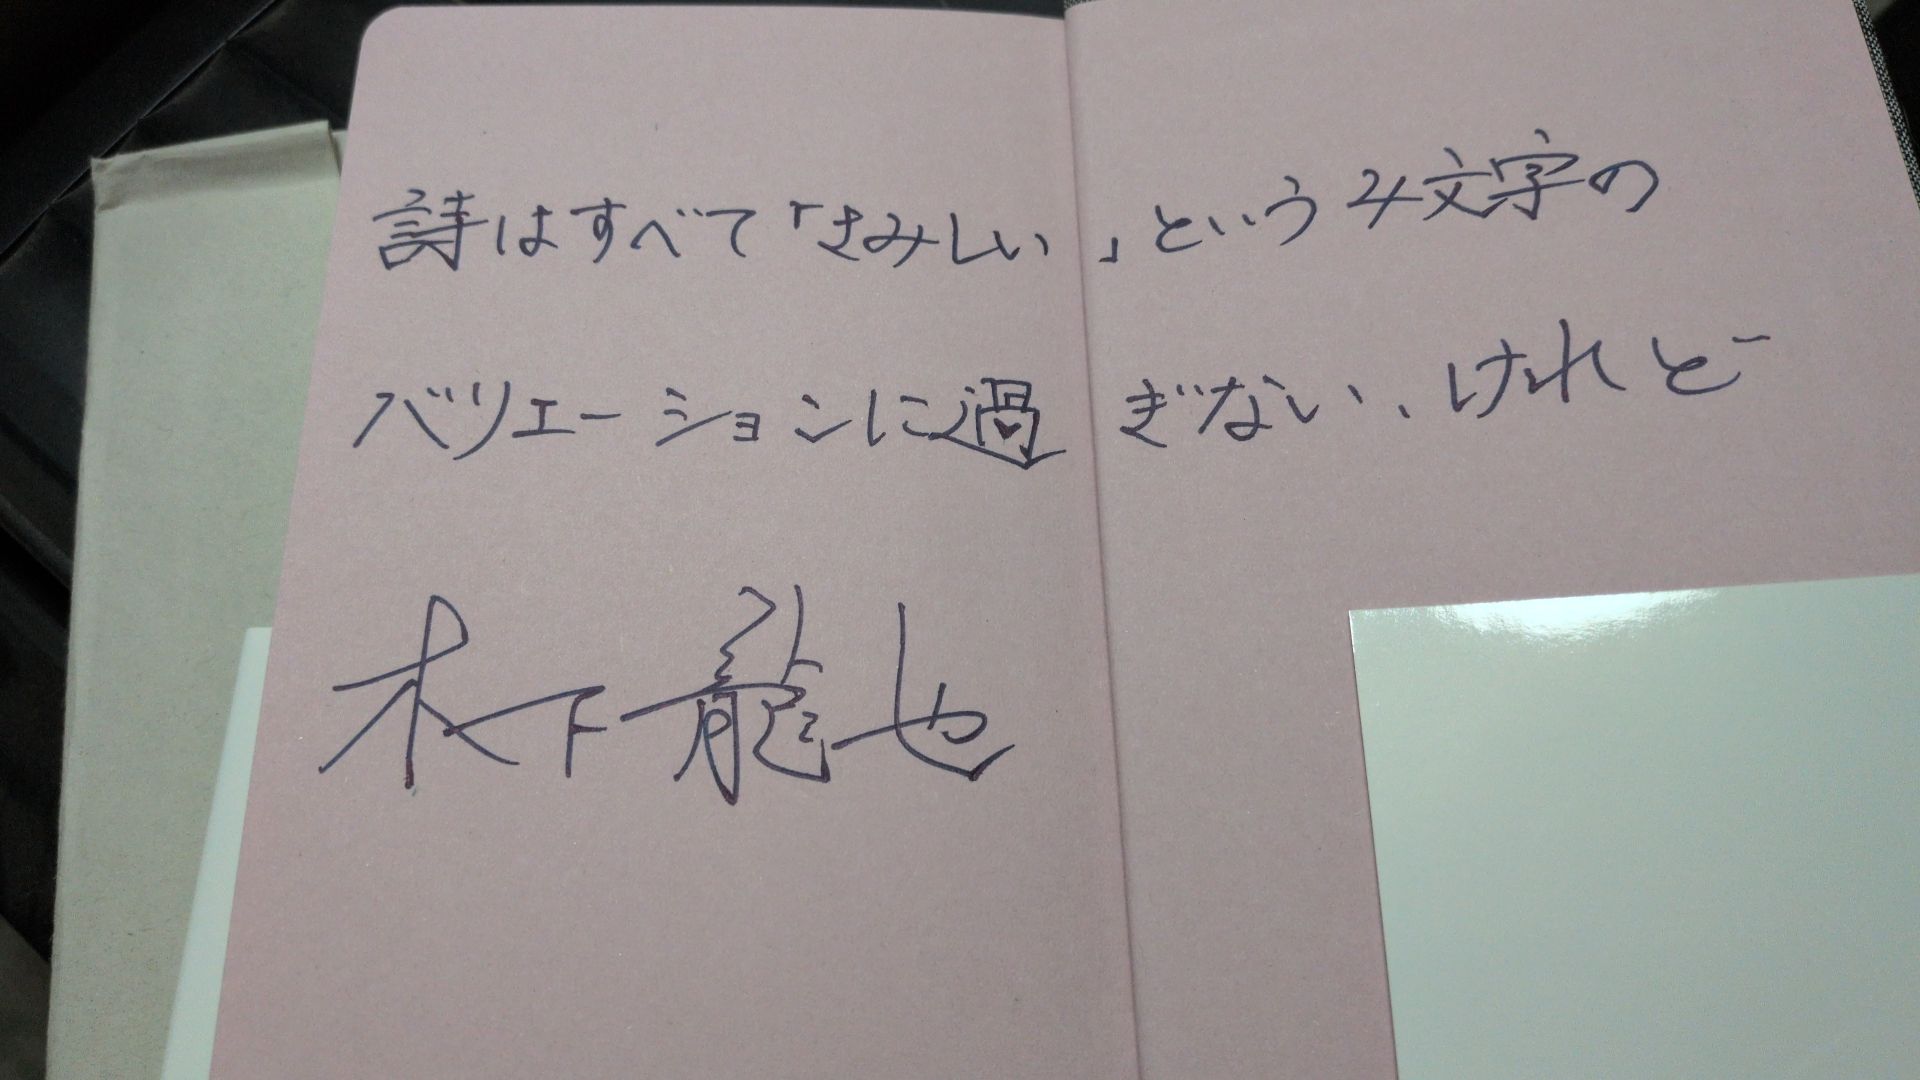 詩はすべて「さみしい」というみ文字の
バリエーションに過ぎない、けれど
木下龍也